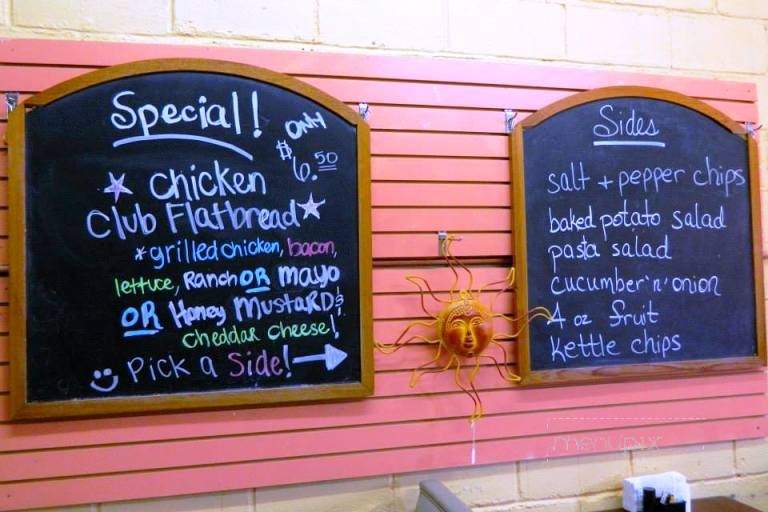 Special!
ONLY
$6.50
Chicken
Club Flatbread
*grilled chicken, bacon,
lettuce, Ranch OR mayo
OR Honey MUSTARD &
cheddar cheese!
Pick a Side!
Sides
salt + pepper chips
baked potato salad
pasta salad
cucumber 'n' onion
4 oz fruit
kettle chips
menupix